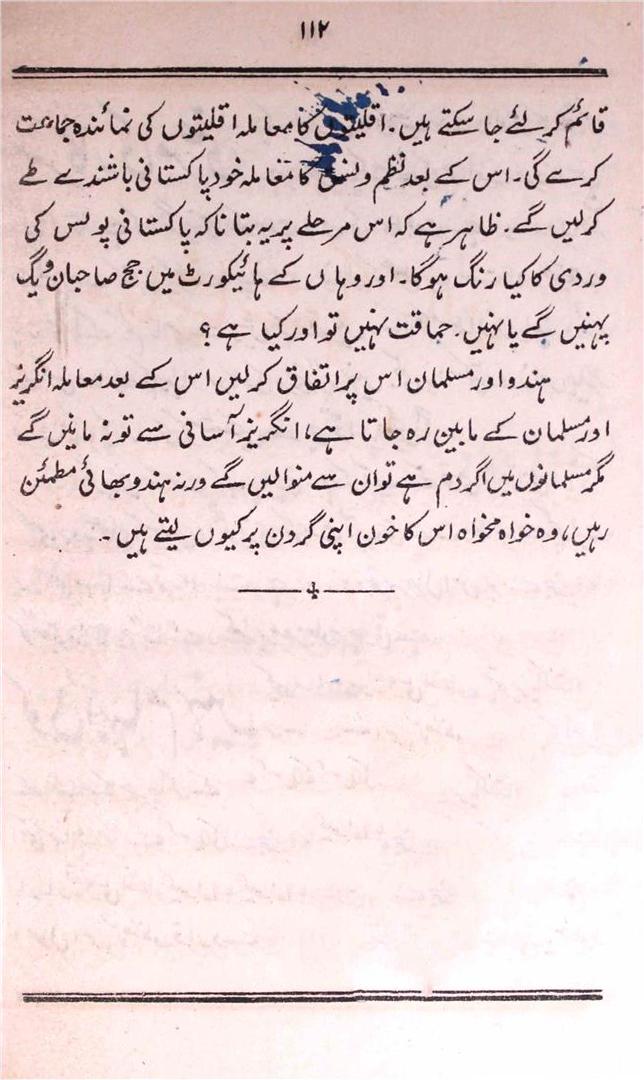 ۱۱۲
قائم کر لئے جا سکتے ہیں۔ اقلیتوں کا معاملہ اقلیتوں کی نمائندہ جماعت
کرے گی۔ اس کے بعد نظم و نسق کا معاملہ خود پاکستانی باشندے طے
کرلیں گے۔ ظاہر ہے کہ اس مرحلے پر یہ بتانا کہ پاکستانی پولس کی
وردی کا کیا رنگ ہوگا۔ اور وہاں کے ہائیکورٹ میں جج صاحبان وِیگ
پہنیں گے یا نہیں۔ حماقت نہیں تو اور کیا ہے ؟
ہندو اور مسلمان اس پر اتفاق کرلیں اس کے بعد معاملہ انگریز
اور مسلمان کے مابین رہ جاتا ہے، انگریز آسانی سے تو نہ مانیں گے
مگر مسلمانوں میں اگر دم ہے تو ان سے منوالیں گے ورنہ ہندو بھائی مطمئن
رہیں، وہ خواہ مخواہ اس کا خون اپنی گردن پر کیوں لیتے ہیں۔